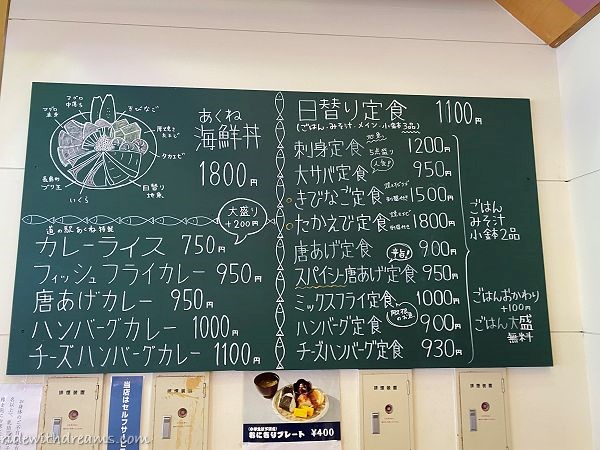 マグロ
中落ち
きびなご
マグロ
赤身
厚焼き
たまご
タカエビ
長島の
ブリ王
いくら
日替り
地魚
あくね
海鮮丼
1800円
大盛り
+200円
道の駅あくね特製
カレーライス 750円
フィッシュフライカレー 950円
唐あげカレー 950円
ハンバーグカレー 1000円
チーズハンバーグカレー 1100円
日替り定食 1100円
(ごはん・みそ汁・メイン・小鉢3品)
刺身定食 地魚 5点盛り 1200円
大サバ定食 人気! 950円
きびなご定食 1500円
たかえび定食 1800円
唐あげ定食 900円
スパイシー唐あげ定食 辛旨! 950円
ミックスフライ定食 1000円
ハンバーグ定食 900円
チーズハンバーグ定食 930円
ごはん
みそ汁
小鉢2品
ごはんおかわり
+100円
ごはん大盛
無料
排煙装置
当店はセルフサ
排煙装置
おにぎりプレート ¥400
排煙装置
排煙装置
ridewithdreams.com